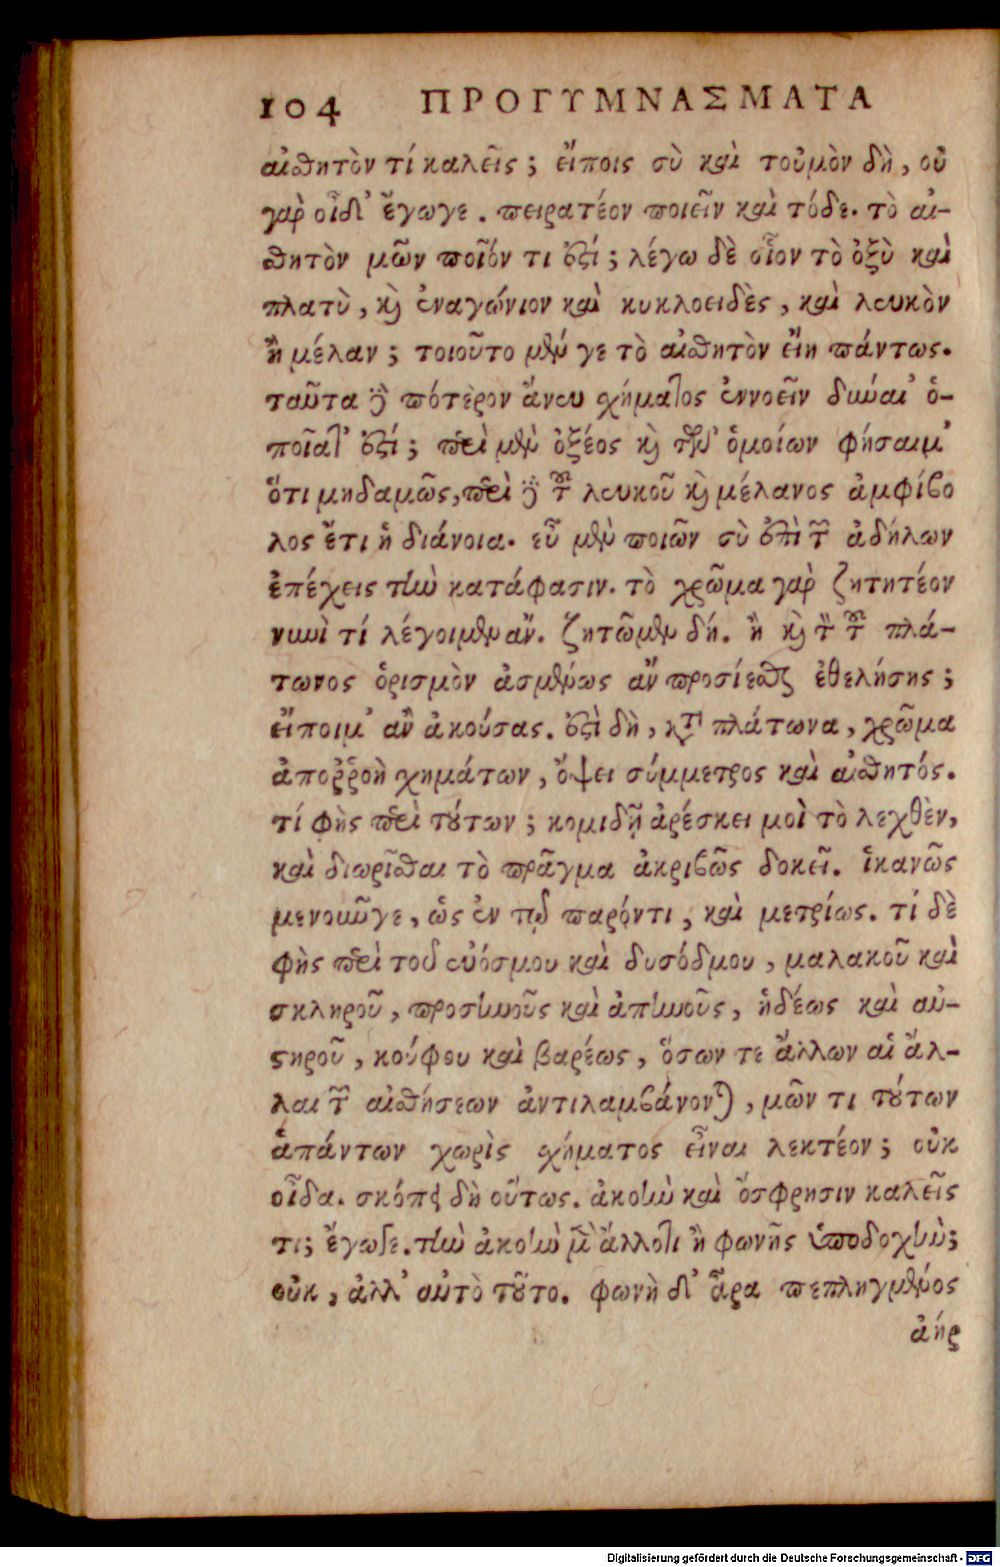 104 ΠΡΟΓΥΜΝΑΣΜΑΤΑ
αἰσθητὸν τί καλεῖς; εἴποις σὺ καὶ τοὐμὸν δὴ, οὐ
γὰρ οἶδ' ἔγωγε. πειρατέον ποιεῖν καὶ τόδε. τὸ αἰ-
σθητὸν μῶν ποῖόν τι ἐστί; λέγω δὲ οἷον τὸ ὀξὺ καὶ
πλατὺ, καὶ ἐναγώνιον καὶ κυκλοειδὲς, καὶ λευκὸν
ἢ μέλαν; τοιοῦτο μέν γε τὸ αἰσθητὸν εἴη πάντως.
ταῦτα δὲ πότερον ἄνευ σχήματος ἐννοεῖν δύναι' ὁ-
ποῖατ' ἐστί; περὶ μὲν ὀξέος καὶ τῶν ὁμοίων φήσαιμ'
ὅτι μηδαμῶς, περὶ δὲ τοῦ λευκοῦ καὶ μέλανος ἀμφίβο
λος ἔτι ἡ διάνοια. εὖ μὲν ποιῶν σὺ ἐπὶ τῶν ἀδήλων
ἐπέχεις τὴν κατάφασιν. τὸ χρῶμα γὰρ ζητητέον
νυνὶ τί λέγοιμεν ἄν. ζητῶμεν δή. ἢ καὶ τὸν τοῦ πλά-
τωνος ὁρισμὸν ἀσμένως ἂν προσίεσθαι ἐθελήσης;
εἴποιμ' ἂν ἀκούσας. ἐστὶ δὴ, κατὰ πλάτωνα, χρῶμα
ἀποῤῥοὴ σχημάτων, ὄψει σύμμετρος καὶ αἰσθητός.
τί φὴς περὶ τούτων; κομιδῇ ἀρέσκει μοὶ τὸ λεχθὲν,
καὶ διωρῖσθαι τὸ πρᾶγμα ἀκριβῶς δοκεῖ. ἱκανῶς
μενοῦνγε, ὡς ἐν τῷ παρόντι, καὶ μετρίως. τί δὲ
φὴς περὶ τοῦ εὐόσμου καὶ δυσόδμου, μαλακοῦ καὶ
σκληροῦ, προσηνοῦς καὶ ἀπηνοῦς, ἡδέως καὶ αὐ-
στηροῦ, κούφου καὶ βαρέως, ὅσων τε ἄλλων αἱ ἄλ-
λαι τῶν αἰσθήσεων ἀντιλαμβάνονται, μῶν τι τούτων
ἁπάντων χωρὶς σχήματος εἶναι λεκτέον; οὐκ
οἶδα. σκόπει δὴ οὕτως. ἀκοὴν καὶ ὄσφρησιν καλεῖς
τι; ἔγωγε. τὴν ἀκοὴν μῶν ἄλλοτι ἢ φωνῆς ὑποδοχὴν;
οὐκ, ἀλλ' αὐτὸ τοῦτο. φωνὴ δ' ἆρα πεπληγμένος
ἀήρ
Digitalisierung gefördert durch die Deutsche Forschungsgemeinschaft - DFG